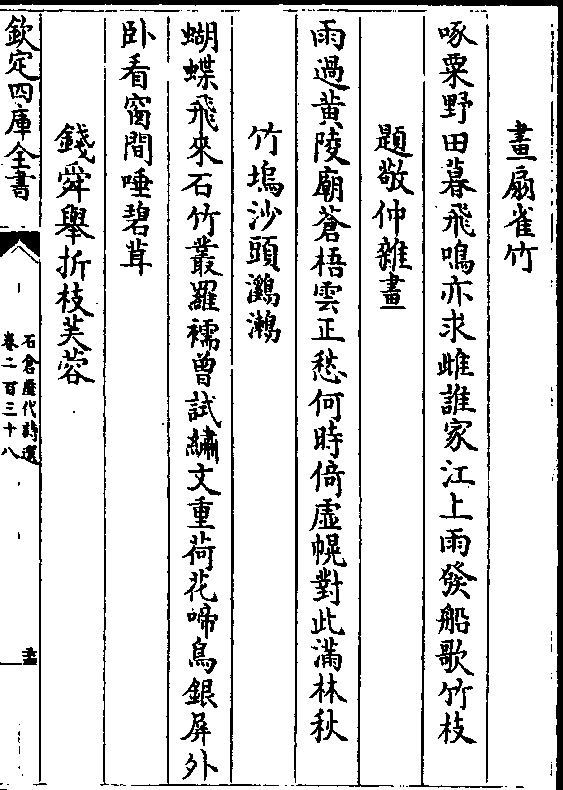 畫扇雀竹
啄粟野田暮飛鳴亦求雌誰家江上雨發船歌竹枝
題敬仲雜畫
雨過黄陵廟蒼梧雲正愁何時倚虛幌對此滿林秋
竹塢沙頭鸂鷘
蝴蝶飛來石竹叢羅襦曽試繡文重荷花啼鳥銀屏外
卧看窗間唾碧茸
錢舜舉折枝芙蓉
欽定四庫全書
石倉歴代詩選
卷二百三十八